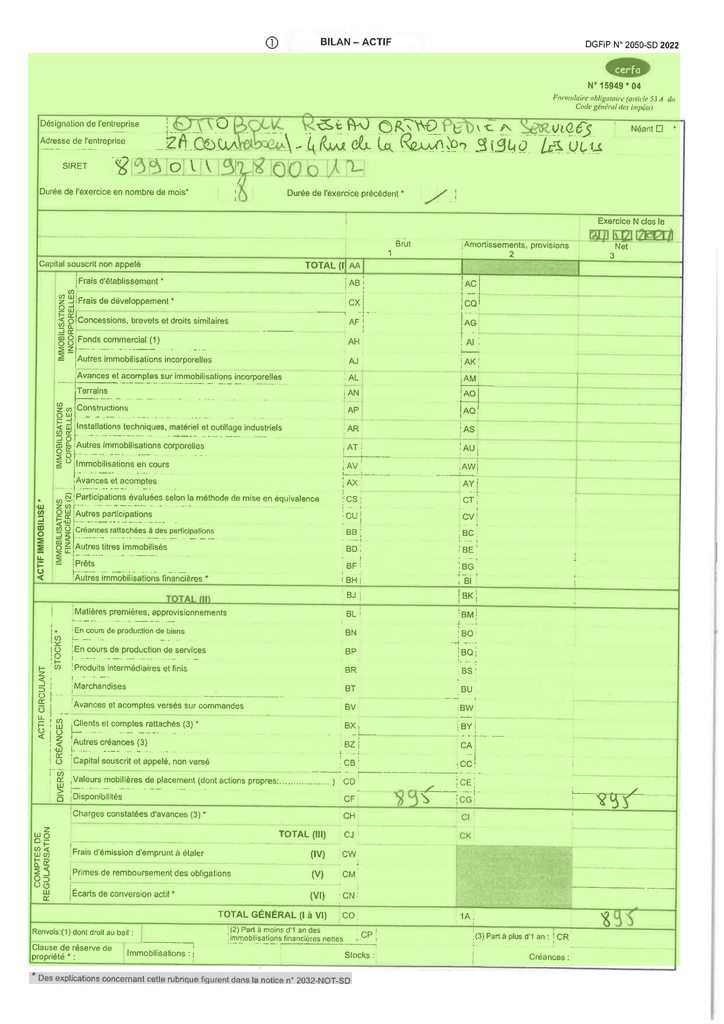 ① BILAN – ACTIF DGFiP N° 2050-SD 2022
cerfa
N° 15949 * 04
Formulaire obligatoire (article 53 A du
Code général des impôts)
Désignation de l'entreprise OTTOBOCK RESEAU ORTHOPEDIE & SERVICES Néant ☐ *
Adresse de l'entreprise ZA Courtaboeuf - 4 Rue de la Reunion 91940 LES ULIS
SIRET 89901192800012
Durée de l'exercice en nombre de mois* 8 Durée de l'exercice précédent * /
Exercice N clos le
Brut Amortissements, provisions Net
1 2 3
Capital souscrit non appelé TOTAL (I AA
ACTIF IMMOBILISÉ *
IMMOBILISATIONS INCORPORELLES
Frais d'établissement * AB AC
Frais de développement * CX CQ
Concessions, brevets et droits similaires AF AG
Fonds commercial (1) AH AI
Autres immobilisations incorporelles AJ AK
Avances et acomptes sur immobilisations incorporelles AL AM
IMMOBILISATIONS CORPORELLES
Terrains AN AO
Constructions AP AQ
Installations techniques, matériel et outillage industriels AR AS
Autres immobilisations corporelles AT AU
Immobilisations en cours AV AW
Avances et acomptes AX AY
IMMOBILISATIONS FINANCIÈRES (2)
Participations évaluées selon la méthode de mise en équivalence CS CT
Autres participations CU CV
Créances rattachées à des participations BB BC
Autres titres immobilisés BD BE
Prêts BF BG
Autres immobilisations financières * BH BI
TOTAL (II) BJ BK
ACTIF CIRCULANT
STOCKS *
Matières premières, approvisionnements BL BM
En cours de production de biens BN BO
En cours de production de services BP BQ
Produits intermédiaires et finis BR BS
Marchandises BT BU
Avances et acomptes versés sur commandes BV BW
CRÉANCES
Clients et comptes rattachés (3) * BX BY
Autres créances (3) BZ CA
Capital souscrit et appelé, non versé CB CC
DIVERS
Valeurs mobilières de placement (dont actions propres:.................. ) CD CE
Disponibilités CF 895 CG 895
COMPTES DE RÉGULARISATION
Charges constatées d'avances (3) * CH CI
TOTAL (III) CJ CK
Frais d'émission d'emprunt à étaler (IV) CW
Primes de remboursement des obligations (V) CM
Écarts de conversion actif * (VI) CN
TOTAL GÉNÉRAL (I à VI) CO 1A 895
Renvois:(1) dont droit au bail : (2) Part à moins d'1 an des immobilisations financières nettes CP (3) Part à plus d'1 an : CR
Clause de réserve de propriété * : Immobilisations : Stocks : Créances :
* Des explications concernant cette rubrique figurent dans la notice n° 2032-NOT-SD